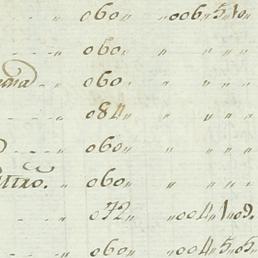 - - - „ 060„ „006„5„10„
- - - „ 060„ „ „ „ „
„ 060„ „ „ „ „
- - - „ 084„ „ „ „ „
- - - „ 060„ „ „ „ „
„ 060„ „ „ „ „
- - „ 072„ „004„1„09„
- - - „ 060„ „004„5„05„